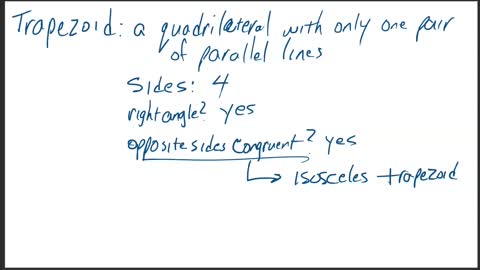 Trapezoid: a quadrilateral with only one pair
of parallel lines
Sides: 4
right angle? yes
opposite sides congruent? yes
isosceles trapezoid